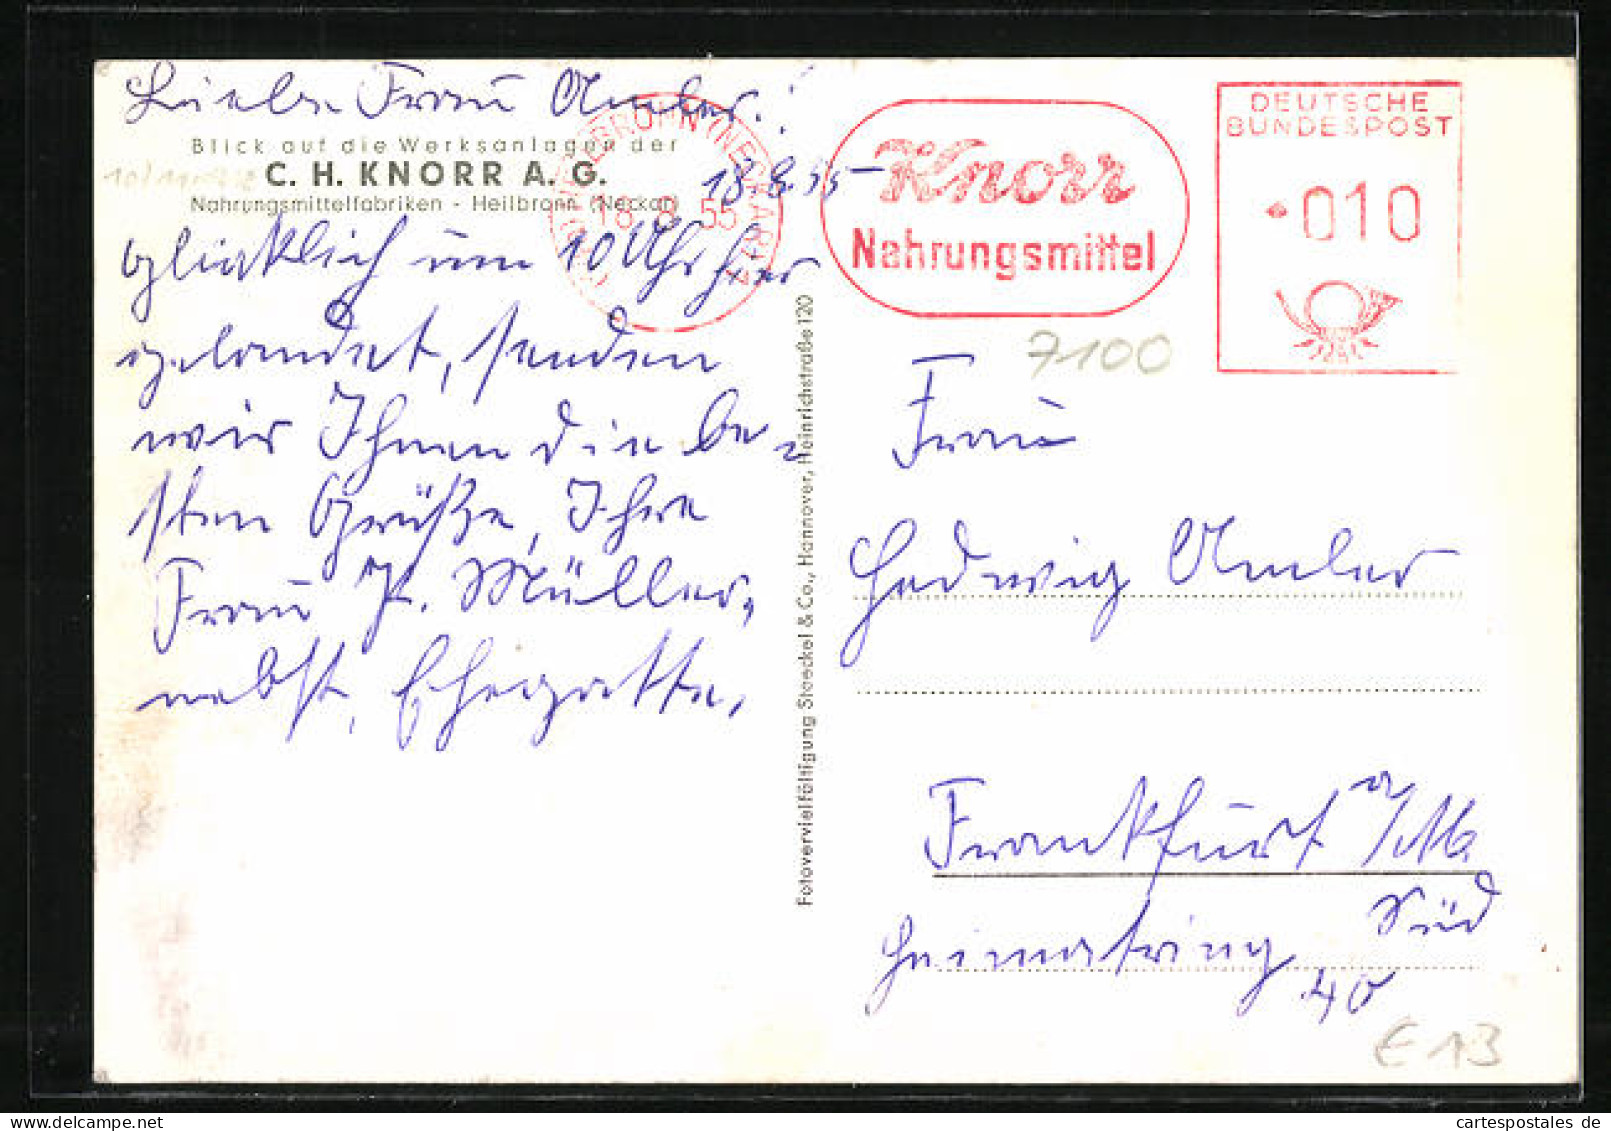 Liebe Frau Amler!
Blick auf die Werksanlagen der
C. H. KNORR A. G.
Nahrungsmittelfabriken - Heilbronn (Neckar)
18.8.55
glücklich um 10 Uhr hier
gelandet, senden
wir Ihnen die be-
sten Grüße, Ihre
Frau P. Müller,
nebst Ehegatte.
Fotovervielfältigung Stoeckel & Co., Hannover, Heinrichstraße 120
HEILBRONN (NECKAR)
18.8.55
Knorr
Nahrungsmittel
DEUTSCHE
BUNDESPOST
010
7100
Frau
Hedwig Amler
Frankfurt a/M.
Süd
Heimatring
40
€ 13
cartespostales de